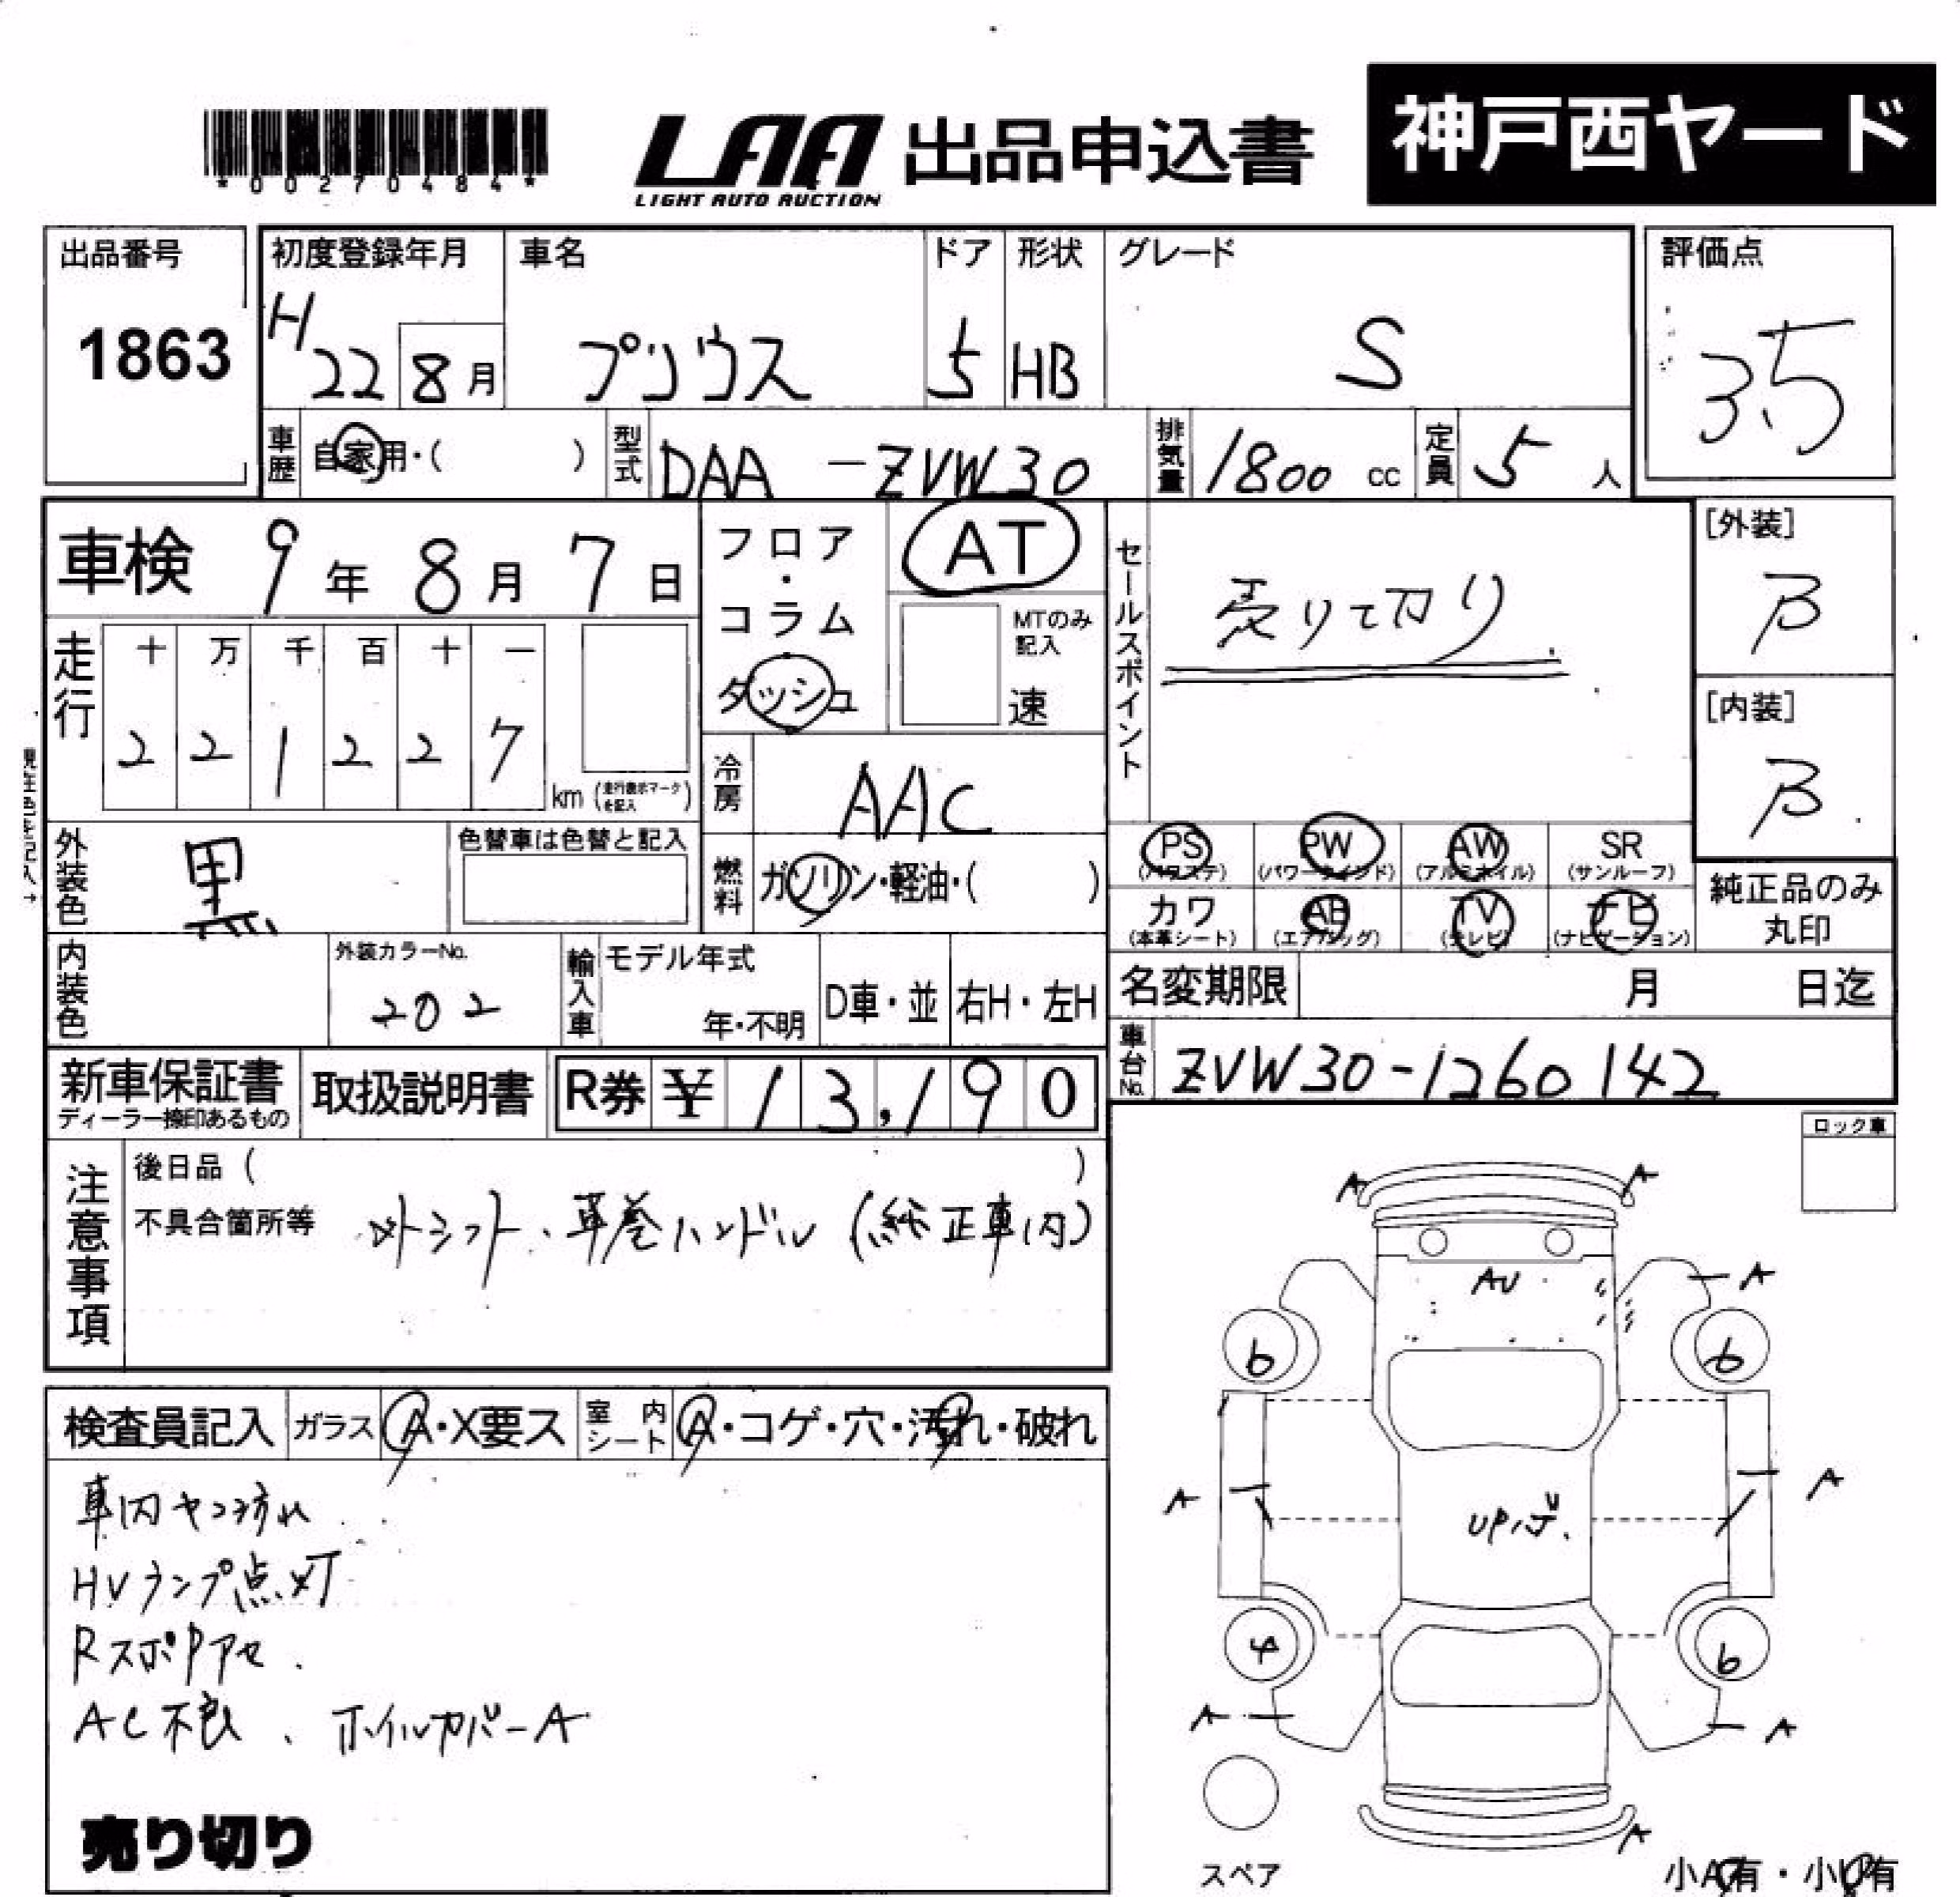 *00270484*
LAA 出品申込書 神戸西ヤード
LIGHT AUTO AUCTION
出品番号 1863
初度登録年月 H22 8月
車名 プリウス
ドア 5
形状 HB
グレード S
評価点 3.5
車歴 自家用・( )
型式 DAA-ZVW30
排気量 1800 cc
定員 5 人
車検 9年 8月 7日
走行 十 万 千 百 十 一
2 2 1 2 2 7
km (走行表示マークを記入)
現在色を記入→
外装色 黒
色替車は色替と記入
内装色
外装カラーNo. 202
フロア・コラム ダッシュ
AT
MTのみ記入
速
冷房 AAC
燃料 ガソリン・軽油・( )
輸入車 モデル年式 年・不明 D車・並 右H・左H
セールスポイント 売り切り
[外装] B
[内装] B
PS (パワステ) PW (パワーウィンド) AW (アルミホイル) SR (サンルーフ)
カワ (本革シート) AB (エアバッグ) TV (テレビ) ナビ (ナビゲーション)
純正品のみ丸印
名変期限 月 日迄
車台No. ZVW30-1260142
新車保証書 ディーラー捺印あるもの
取扱説明書
R券 ¥13,190
注意事項
後日品 ( )
不具合箇所等 社外シフト、革巻ハンドル (純正車内)
検査員記入 ガラス A・X要ス 室内シート A・コゲ・穴・汚れ・破れ
車内ヤニ汚れ
HVランプ点灯
RスポPアセ
AC不良、ホイルカバーA
売り切り
ロック車
A A
AU
A
6 6
A A
UP.げ
4 6
A A
A
スペア
小A有・小U有